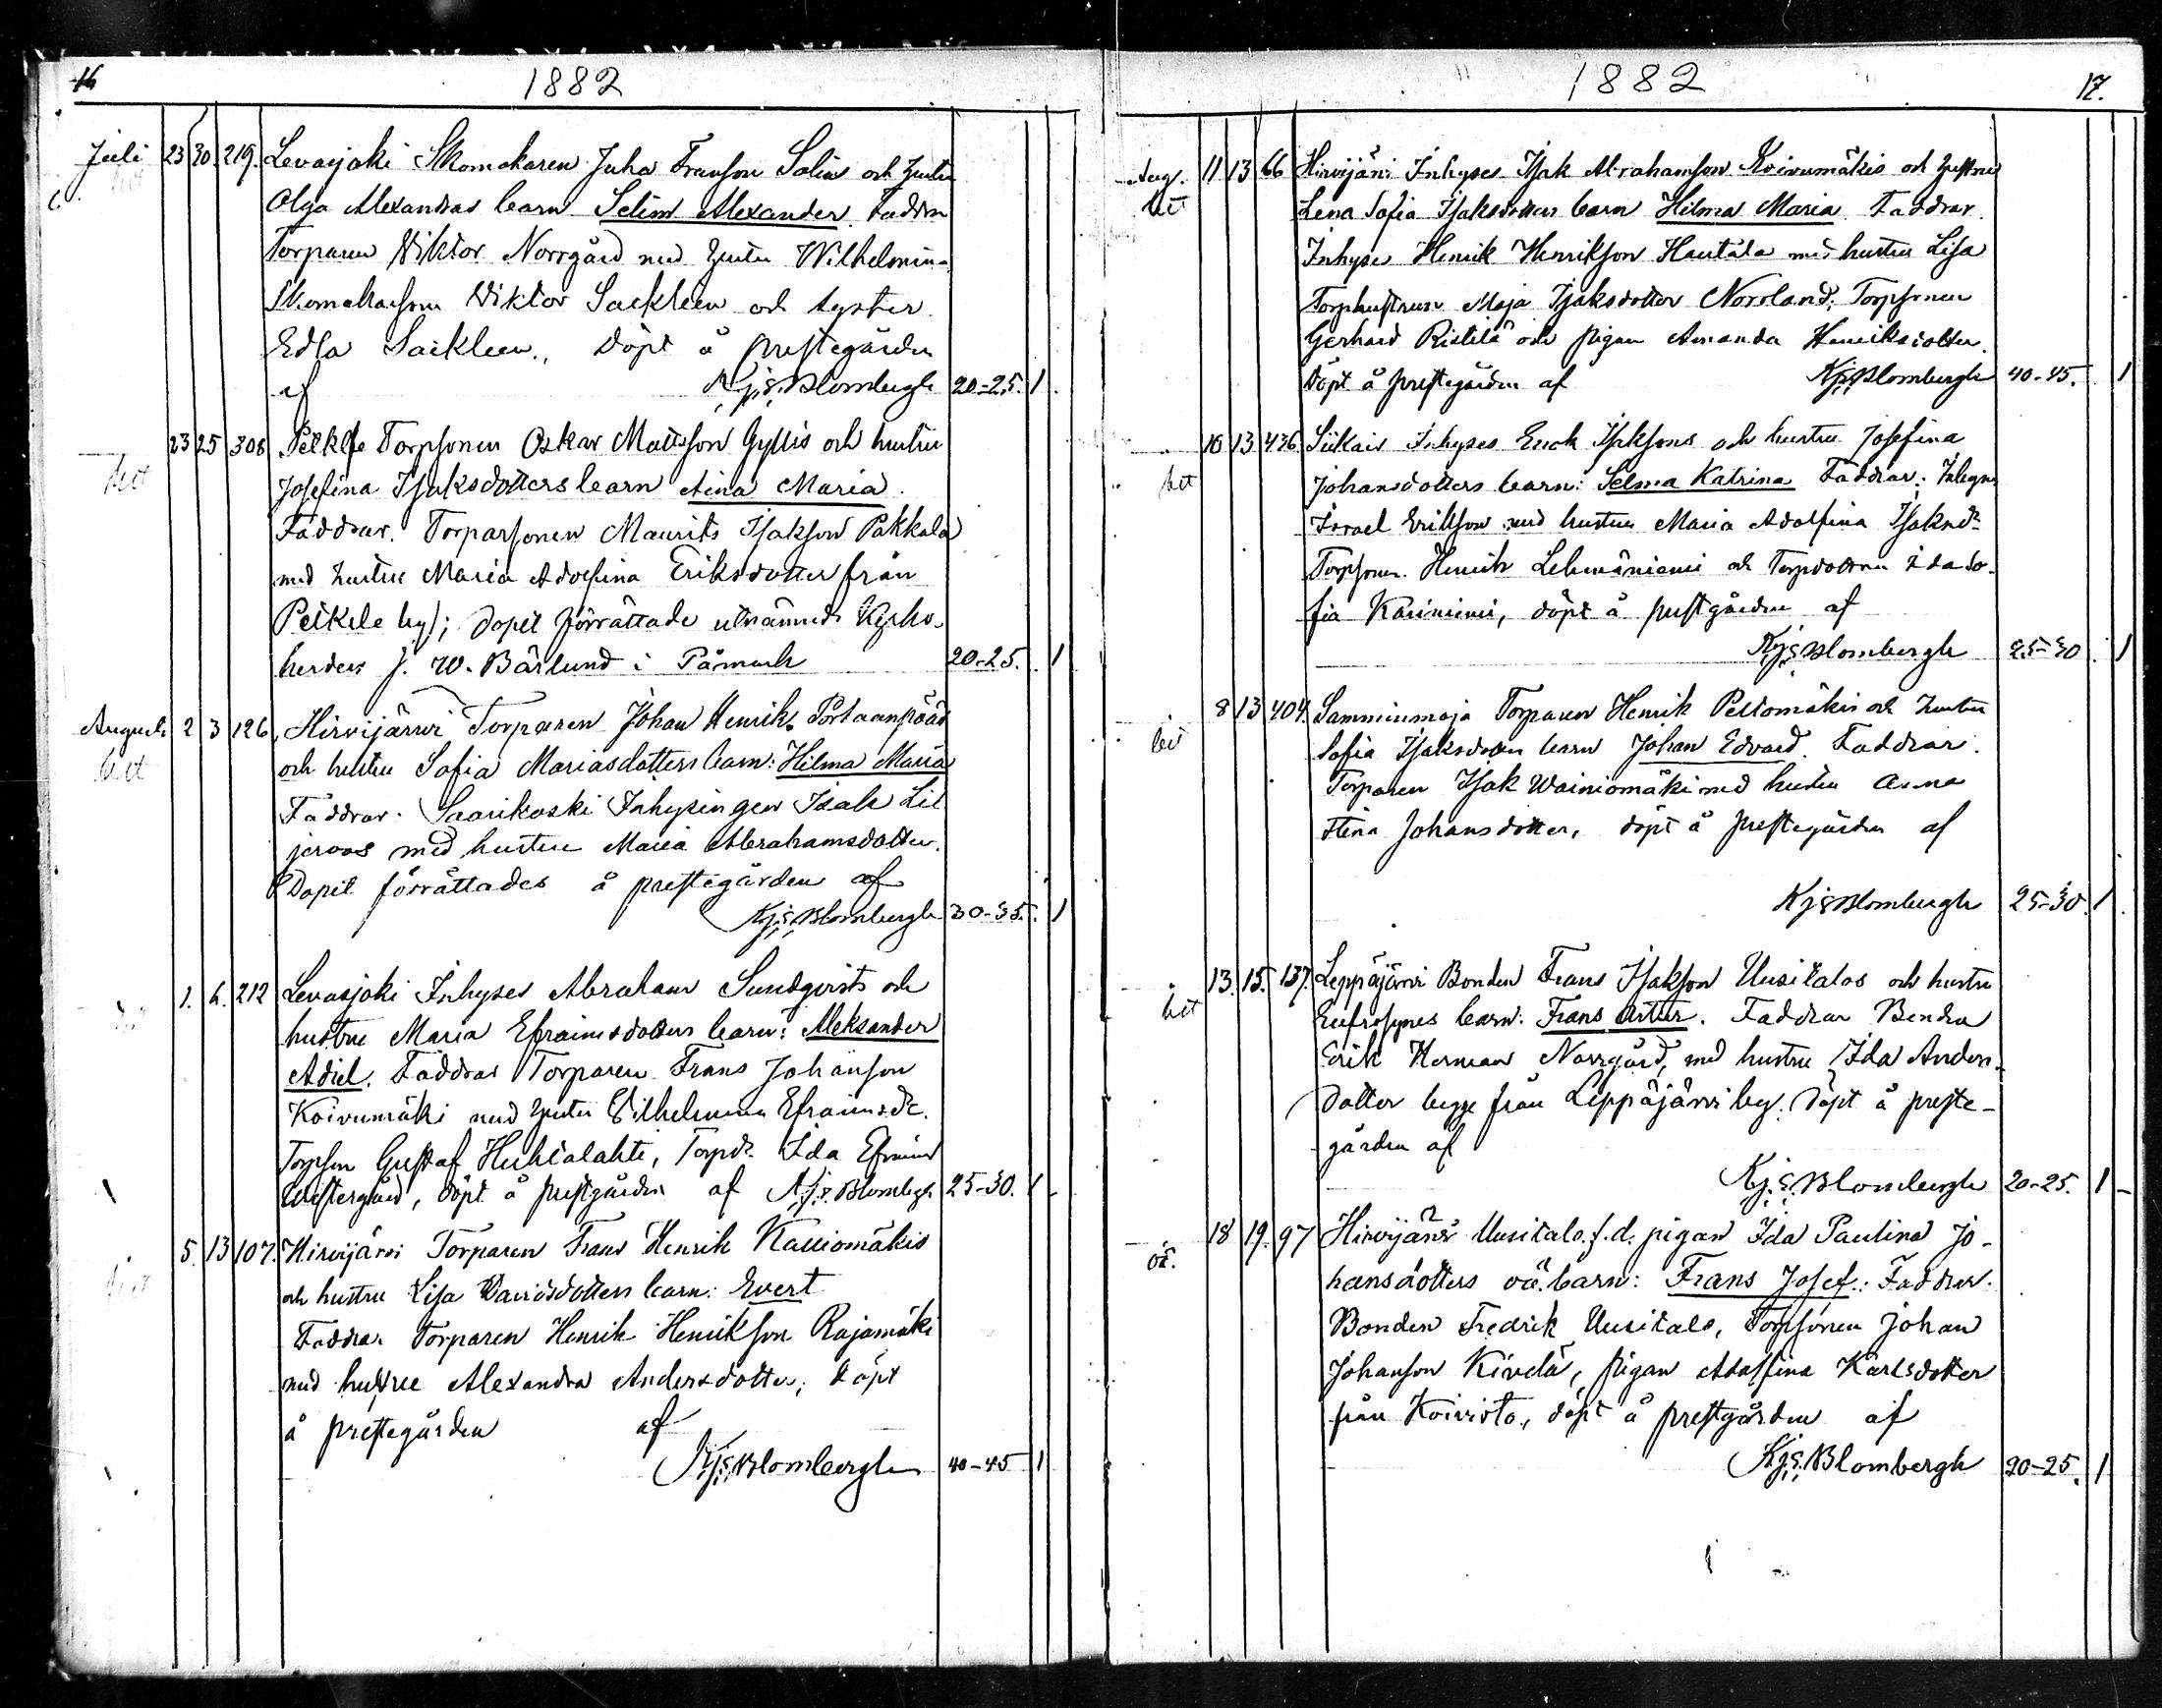 16
1882
Juli 23 30. 219. Levasjoki Skomakaren Juha Franson Salins och hustru
Olga Alexandras barn Selim Alexander. Faddrar
Torparen Viktor Norrgård med hustru Wilhelmina
Skomakarson Viktor Sackleen och syster
Edla Sackleen., Döpt å prestegården
af Kj. S. Blombergh 20-25. 1
23 25 308 Peikle Torpsonen Oskar Mattsson Gyllis och hustru
het Josefina Isaksdotters barn Aina Maria.
Faddrar. Torparsonen Maurits Isakson Pakkala
med hustru Maria Adolfina Eriksdotter från
Peikele by; Dopet förrättade utnämnde Kyrko-
herden J. W. Bärlund i Påmark 20-25. 1
Augusti 2 3 126, Hirvijärvi Torparen Johan Henriks. Portaanpääs
het och hustru Sofia Mariasdotters barn: Hilma Maria
Faddrar. Saarikoski Inhysingen Isak Lil
jeroos med hustru Maria Abrahamsdotter.
Dopet förrättades å prestegården af
Kj. S. Blombergh 30-35. 1
1. 6. 212 Levasjoki Inhyses Abraham Sundqvists och
hustru Maria Efraimsdotters barn: Aleksander
Adiel. Faddrar Torparen Frans Johanson
Koivumäki med hustru Vilhelmina Efraimsdr.
Torpson Gustaf Huhtalahti, Torpdr Ida Efraimsd
Westergård, döpt å prestgården af Kj. S. Blombergh 25-30. 1
5. 13 107. Hirvijärvi Torparen Frans Henrik Kalliomäkis
och hustru Lisa Davidsdotters barn: Evert
Faddrar Torparen Henrik Henrikson Rajamäki
med hustru Alexandra Andersdotter; döpt
å prestegården af
Kj. S. Blombergh 40-45 1
1882
17.
Aug. 11 13 66 Hirvijärvi Inhyses Isak Abrahamson Koivumäkis och hustrus
het Lena Sofia Isaksdotters barn Hilma Maria Faddrar.
Inhyses Henrik Henrikson Hautala med hustru Lisa
Torphustrun Maja Isaksdotter Norrland; Torpsonen
Gerhard Ristilä och pigan Amanda Henriksdotter.
Döpt å prestegården af Kj. S. Blombergh 40-45. 1
10 13 436. Siikais Inhyses Erick Isaksons och hustru Josefina
het Johansdotters barn: Selma Katrina Faddrar: Inhyses
Israel Erikson med hustru Maria Adolfina Isaksdr
Torpsonen Henrik Lehmäniemi och Torpdottren Ida So-
fia Kauniemi, döpt å prestgården af
Kj. S. Blombergh 25-30 1
8 13 404. Samminmaja Torparen Henrik Peltomäkis och hustru
het Sofia Isaksdotters barn Johan Edvard. Faddrar.
Torparen Isak Wainiomäki med hustru Anna
Stina Johansdotter, döpt å prestegården af
Kj S Blombergh 25-30. 1
13. 15. 137. Leppäjärvi Bonden Frans Isakson Uusitalos och hustru
het Eufrosynes barn: Frans Artur. Faddrar Bonden
Erik Herman Norrgård, med hustru Ida Anders-
dotter begge från Leppäjärvi by. Döpt å preste-
gården af
Kj. S. Blombergh 20-25. 1
18 19. 97 Hirvijärvi Uusitalo. f.d. pigan Ida Paulina Jo-
oä. hansdotters oä. barn: Frans Josef.: Faddrar.
Bonden Fredrik Uusitalo, Torpsonen Johan
Johanson Kivelä, pigan Adolfina Karlsdotter
från Koivisto, döpt å prestgården af
Kj. S. Blombergh 20-25. 1